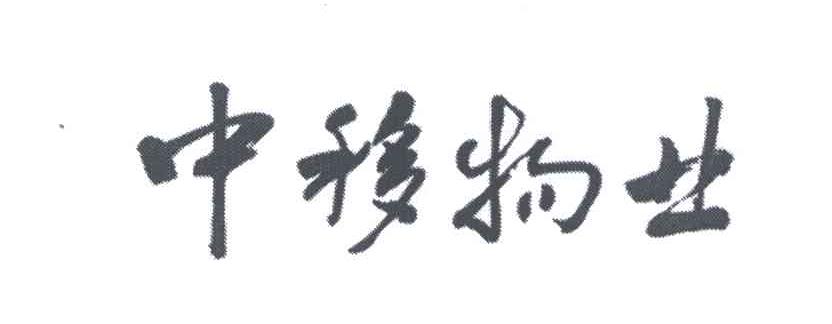 中移物业